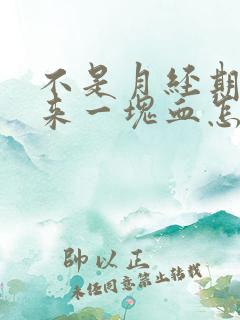 不是月经期
来一塊血怎
帥以正
未经同意禁止转载